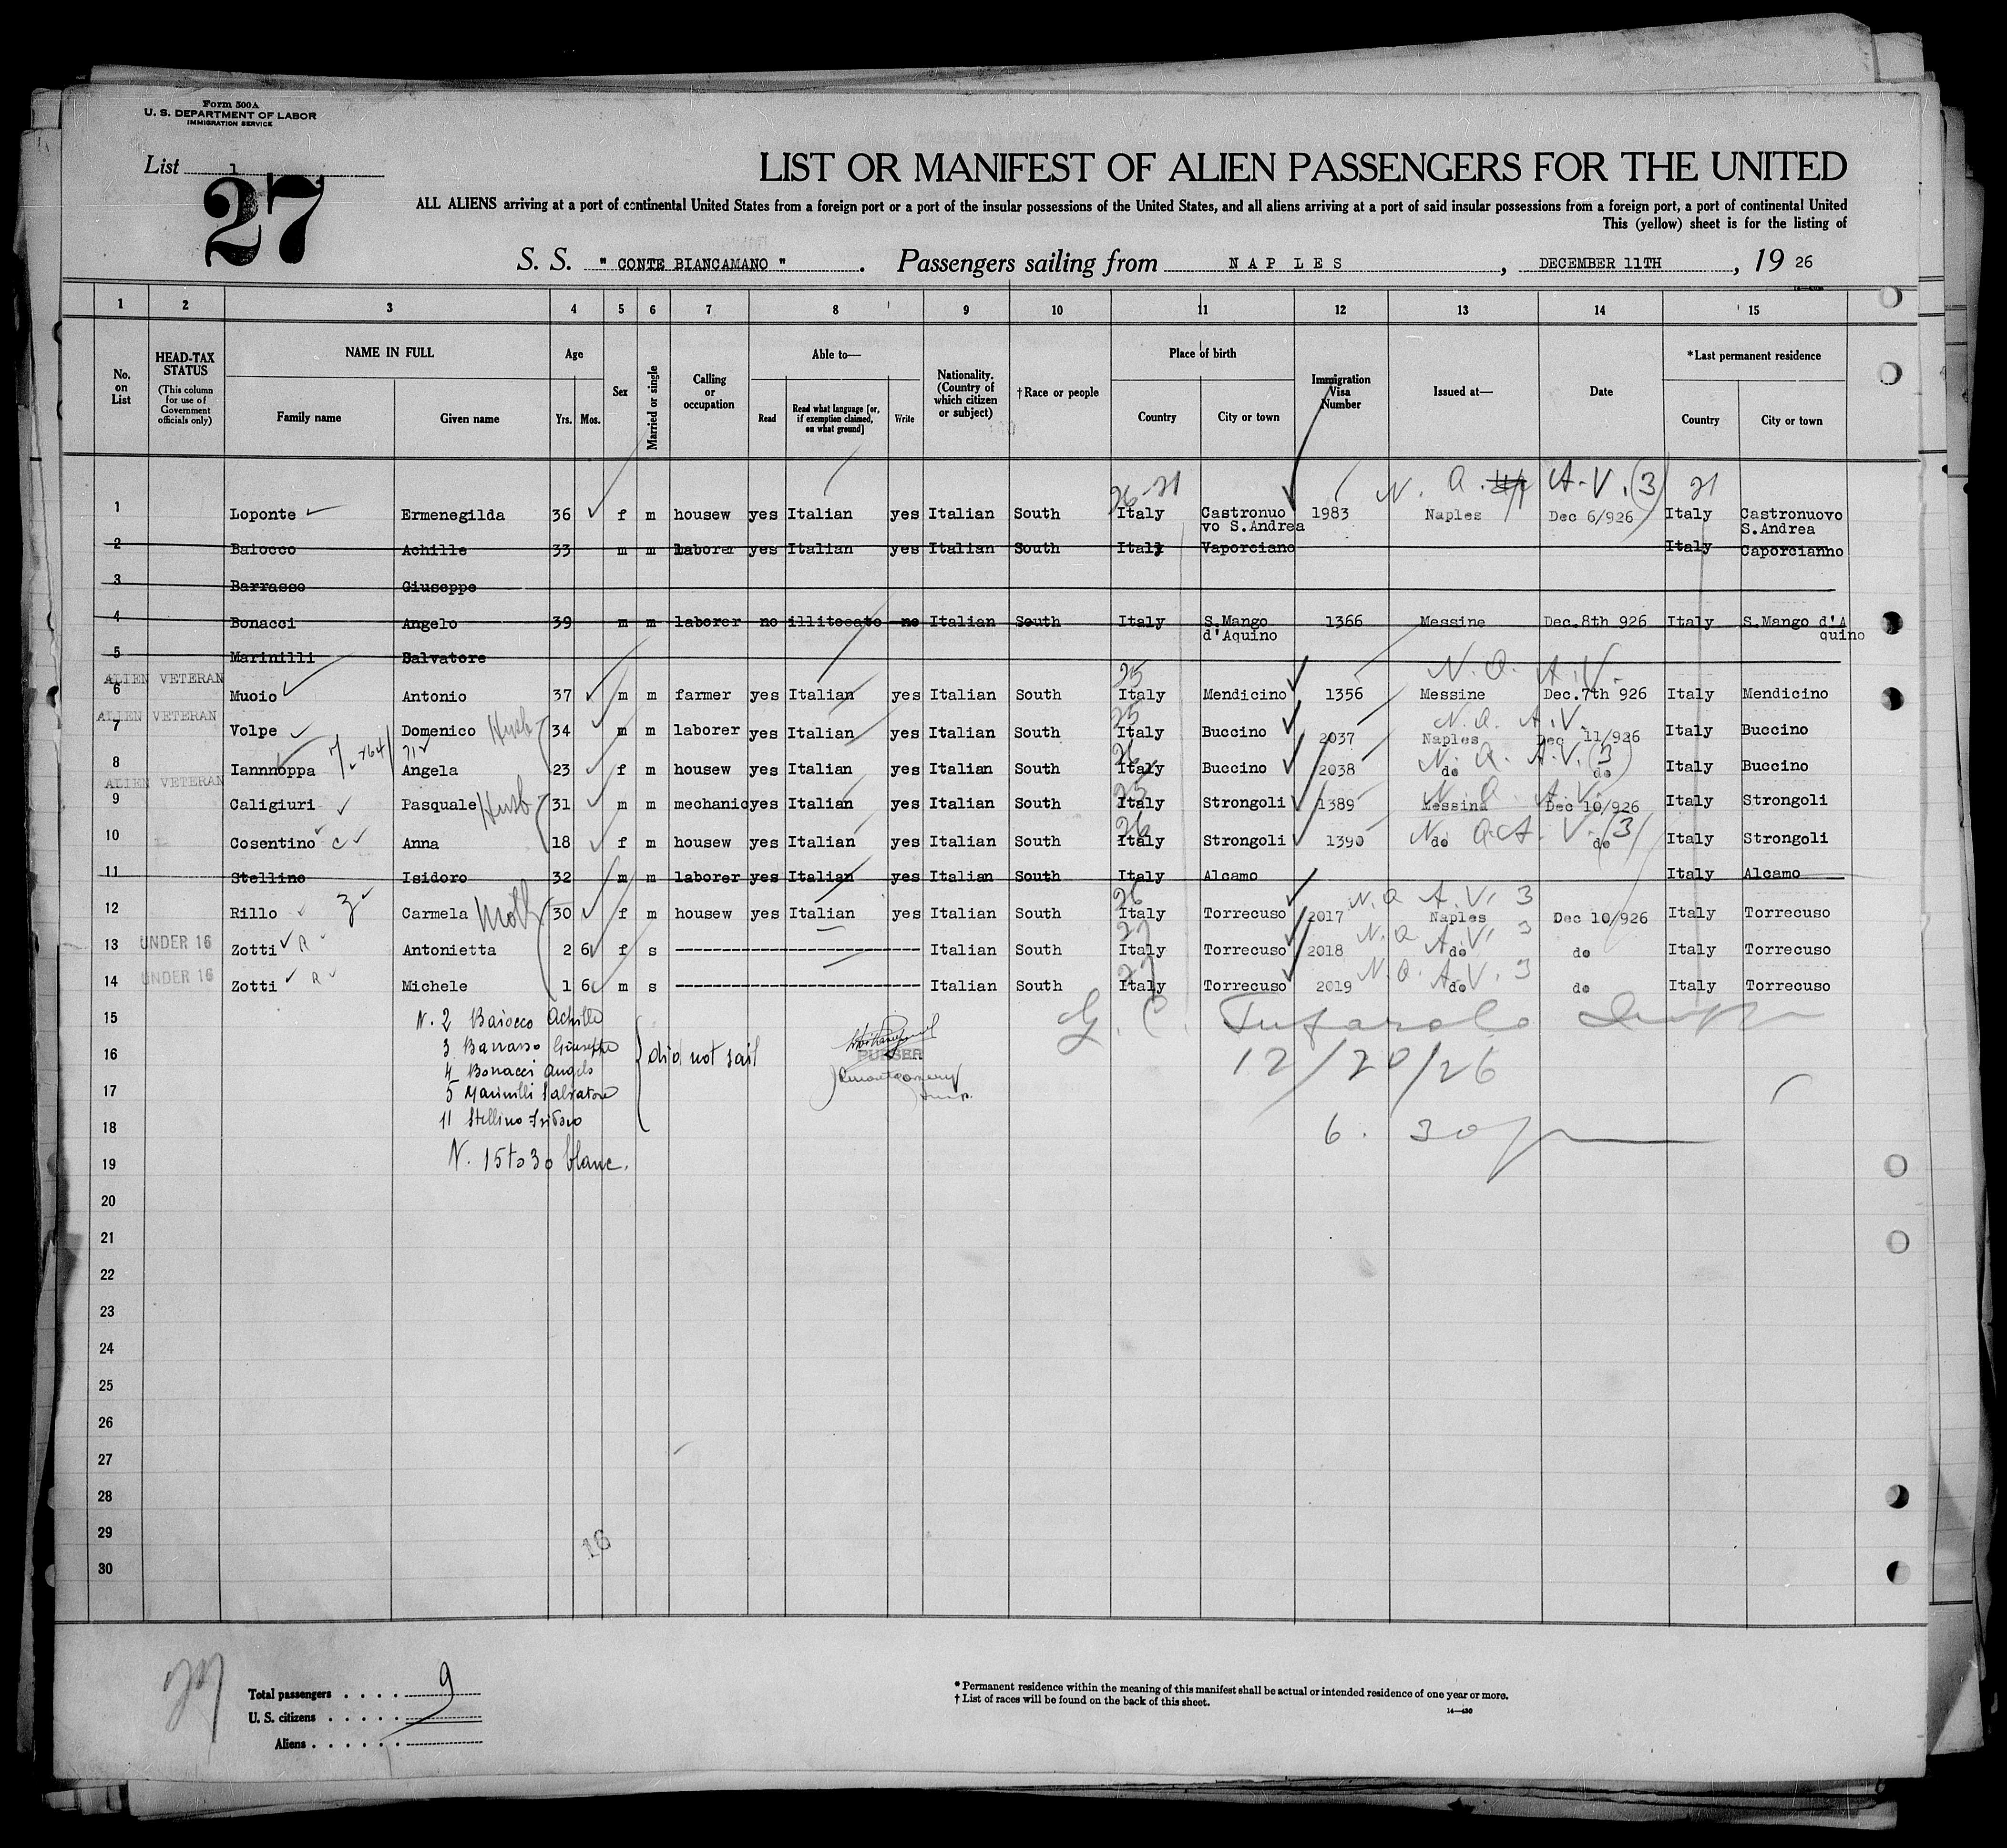 Form 500A
U. S. DEPARTMENT OF LABOR
IMMIGRATION SERVICE
List 1
27
LIST OR MANIFEST OF ALIEN PASSENGERS FOR THE UNITED
ALL ALIENS arriving at a port of continental United States from a foreign port or a port of the insular possessions of the United States, and all aliens arriving at a port of said insular possessions from a foreign port, a port of continental United
This (yellow) sheet is for the listing of
S. S. " CONTE BIANCAMANO " . Passengers sailing from N A P L E S , DECEMBER 11TH , 19 26
1 2 3 4 5 6 7 8 9 10 11 12 13 14 15
No. on List
HEAD-TAX STATUS (This column for use of Government officials only)
NAME IN FULL
Family name Given name
Age
Yrs. Mos.
Sex
Married or single
Calling or occupation
Able to—
Read Read what language [or, if exemption claimed, on what ground] Write
Nationality. (Country of which citizen or subject)
†Race or people
Place of birth
Country City or town
Immigration Visa Number
Issued at—
Date
*Last permanent residence
Country City or town
26-21 N. A. A.V. (3) 21
1 Loponte Ermenegilda 36 f m housew yes Italian yes Italian South Italy Castronuo vo S.Andrea 1983 Naples Dec 6/926 Italy Castronuovo S.Andrea
2 Baiocco Achille 33 m m laborer yes Italian yes Italian South Italy Vaporciano Italy Caporcianno
3 Barrasso Giuseppe
4 Bonacci Angelo 39 m m laborer no illitecate no Italian South Italy S.Mango d'Aquino 1366 Messine Dec.8th 926 Italy S.Mango d'A quino
5 Marinilli Salvatore
ALIEN VETERAN 25 N. A. A.V.
6 Muoio Antonio 37 m m farmer yes Italian yes Italian South Italy Mendicino 1356 Messine Dec.7th 926 Italy Mendicino
ALIEN VETERAN 25 N. A. A.V.
7 Volpe Domenico Husb 34 m m laborer yes Italian yes Italian South Italy Buccino 2037 Naples Dec 11/926 Italy Buccino
26 N. A. A.V. (3)
8 Iannnoppa Angela 23 f m housew yes Italian yes Italian South Italy Buccino 2038 do do Italy Buccino
ALIEN VETERAN 25 N. A. A.V.
9 Caligiuri Pasquale Husb 31 m m mechanic yes Italian yes Italian South Italy Strongoli 1389 Messina Dec 10/926 Italy Strongoli
26 N. A. A. V. (3)
10 Cosentino c Anna 18 f m housew yes Italian yes Italian South Italy Strongoli 1390 do do Italy Strongoli
11 Stellino Isidoro 32 m m laborer yes Italian yes Italian South Italy Alcamo Italy Alcamo
26 N. A A.V. 3
12 Rillo Z Carmela Moth 30 f m housew yes Italian yes Italian South Italy Torrecuso 2017 Naples Dec 10/926 Italy Torrecuso
27 N. A A.V. 3
13 UNDER 16 Zotti R Antonietta 2 6 f s Italian South Italy Torrecuso 2018 do do Italy Torrecuso
27 N. A. A.V. 3
14 UNDER 16 Zotti R Michele 1 6 m s Italian South Italy Torrecuso 2019 do do Italy Torrecuso
15 N. 2 Baiocco Achille
3 Barrasso Giuseppe
16 4 Bonacci Angelo did not sail PURSER 12/20/26
17 5 Marinilli Salvatore
11 Stellino Isidoro
18 6. 30 pm
19 N. 15 to 30 blanc.
20
21
22
23
24
25
26
27
28
29
16
30
Total passengers . . . . 9
U. S. citizens . . . . .
Aliens . . . . . .
* Permanent residence within the meaning of this manifest shall be actual or intended residence of one year or more.
† List of races will be found on the back of this sheet.
14—430